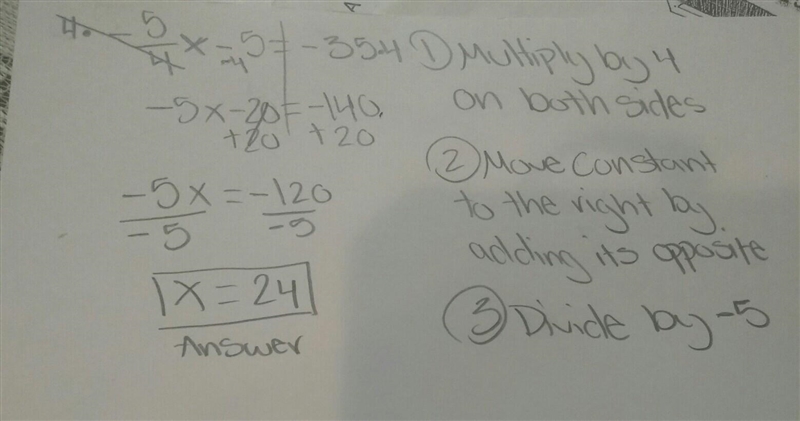 4. -5/4 x -5 = -35.4
-4
-5x-20=-140
+20 +20
-5x = -120
-5 -5
x = 24
Answer
① Multiply by 4
on both sides
② Move constant
to the right by
adding its opposite
③ Divide by -5